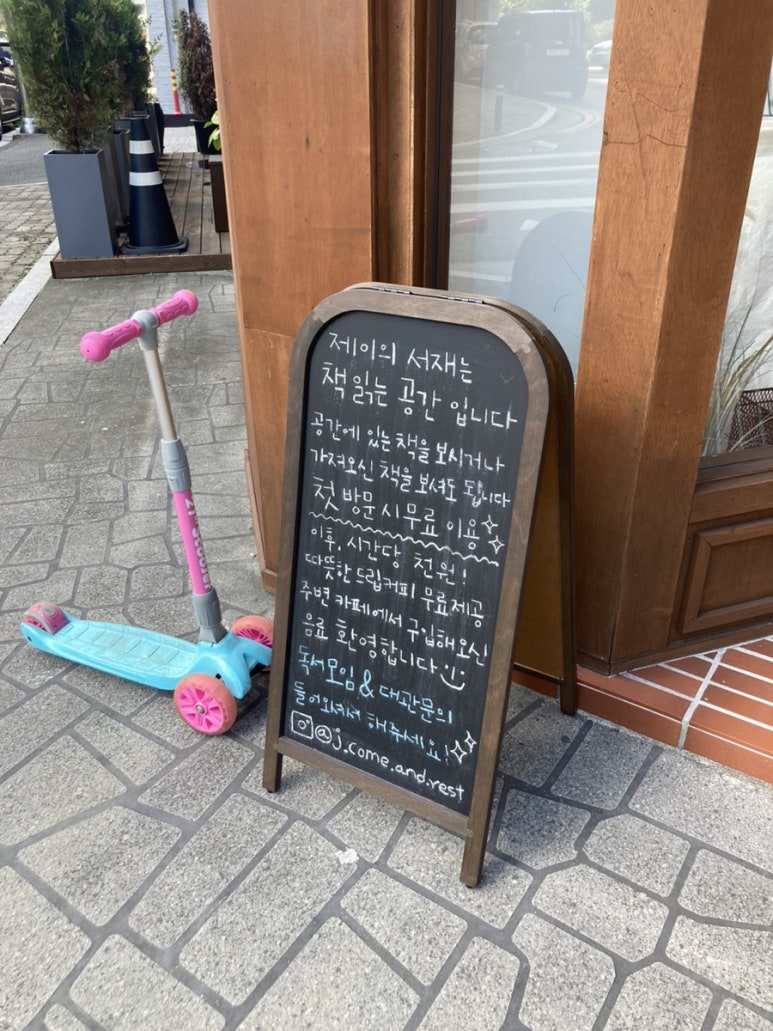 제이의 서재는
책 읽는 공간 입니다
공간에 있는 책을 보시거나
가져오신 책을 보셔도 됩니다
첫 방문 시 무료 이용
이후, 시간당 천원!
따뜻한 드립커피 무료제공
주변 카페에서 구입해오신
음료 환영합니다
독서모임 & 대관문의
들어오셔서 해주세요!
@j.come.and.rest
21st scooter